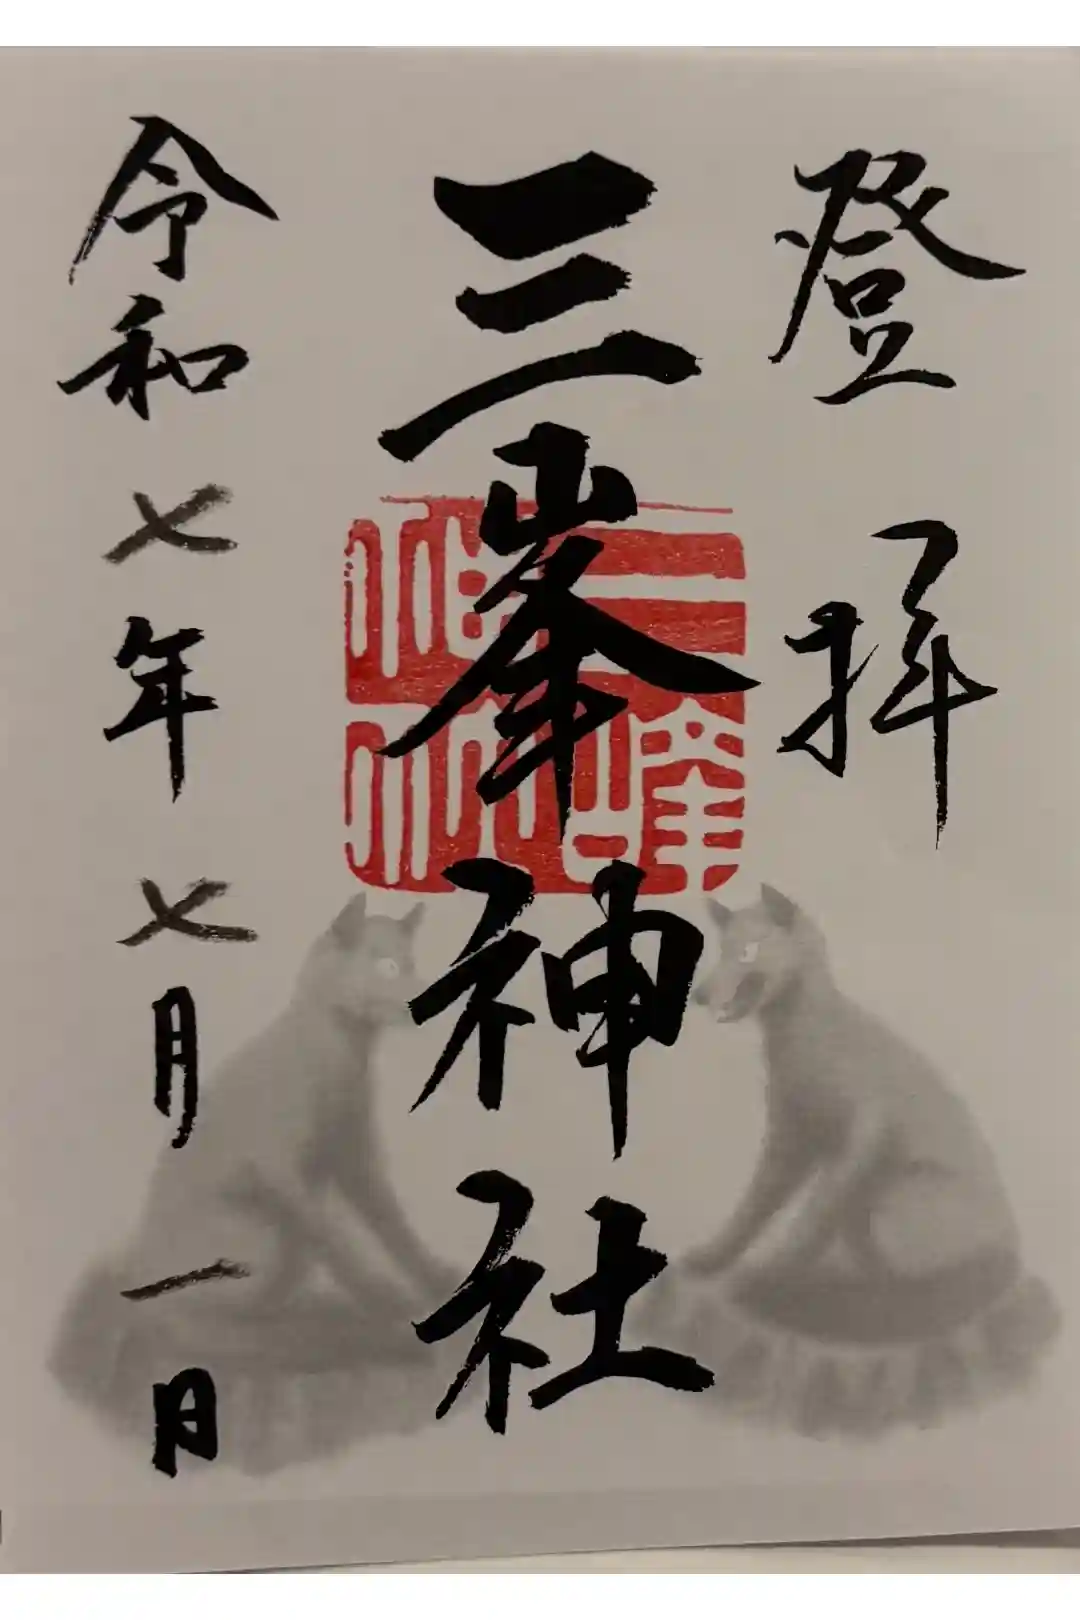 登拝
三峯神社
令和七年七月一日